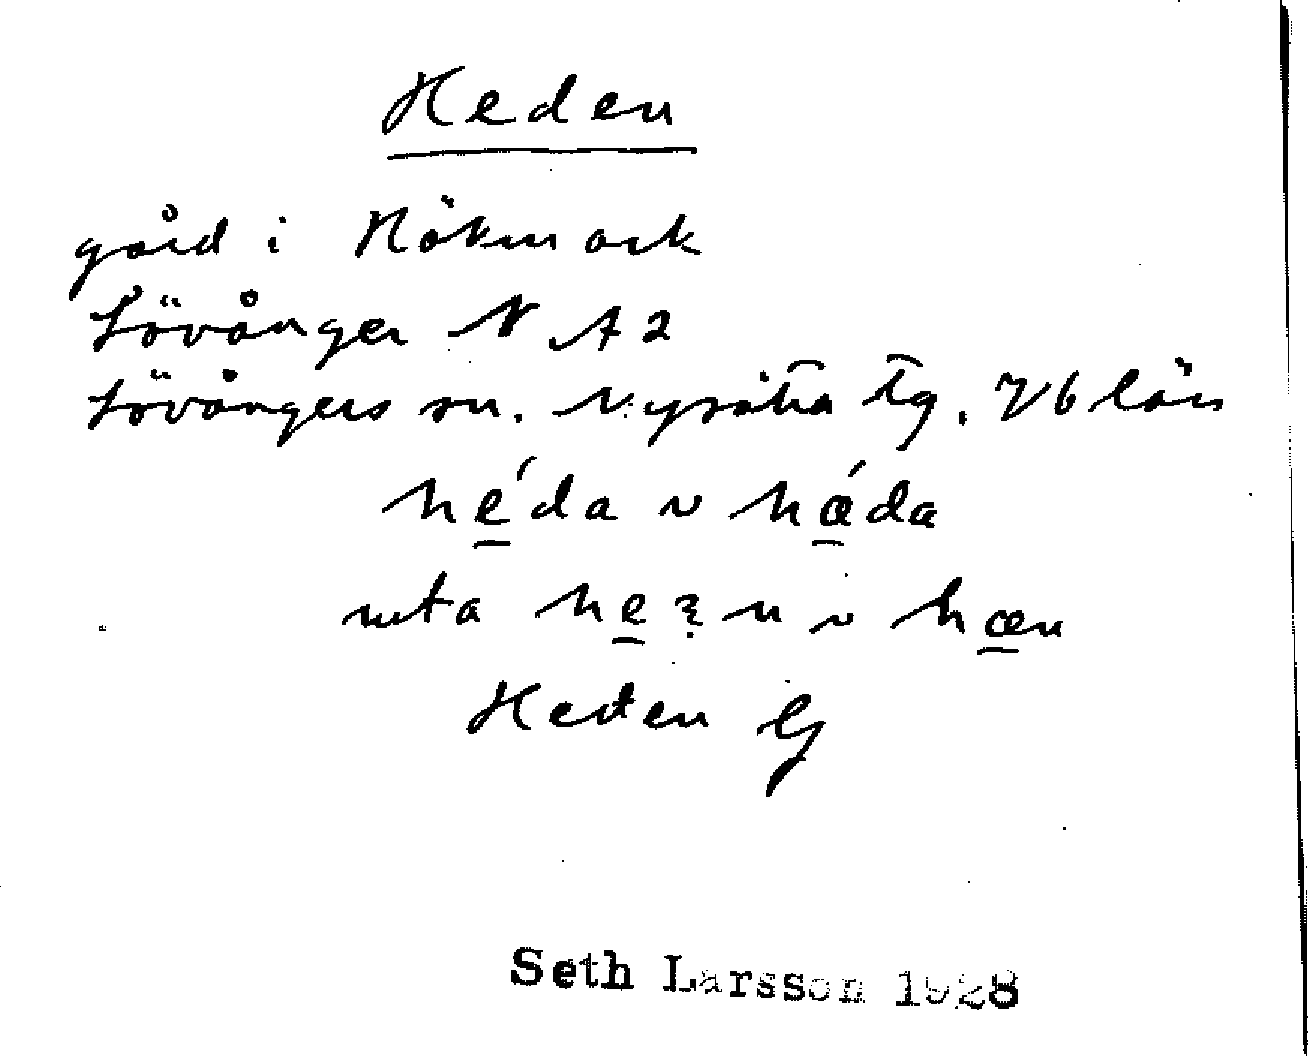 Heden
gård i Hökmark
Lövånger N A 2
Lövångers sn. Nysätra tg. Vb län
hé̲da v hǽ̲da
uta he̲ v hæ̲n
Heden G
Seth Larsson 1928